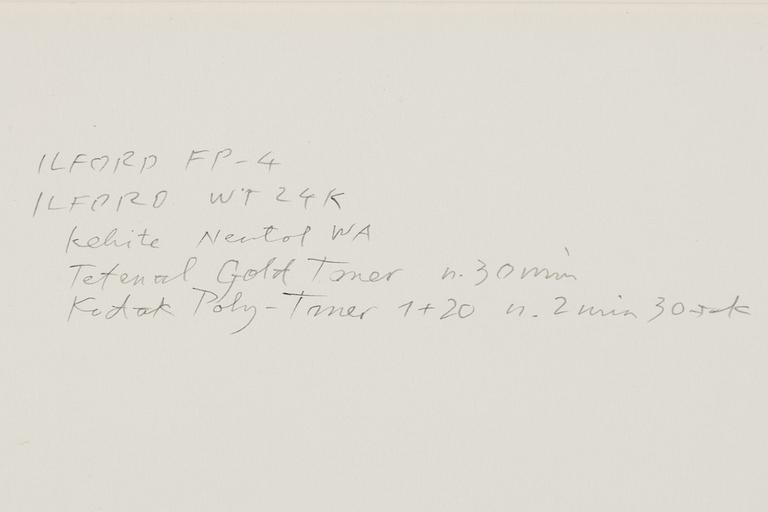 ILFORD FP-4
ILFORD WT 24K
kehite Neutol WA
Tetenal Gold Toner n. 30 min
Kodak Poly-Toner 1+20 n. 2 min 30 sek